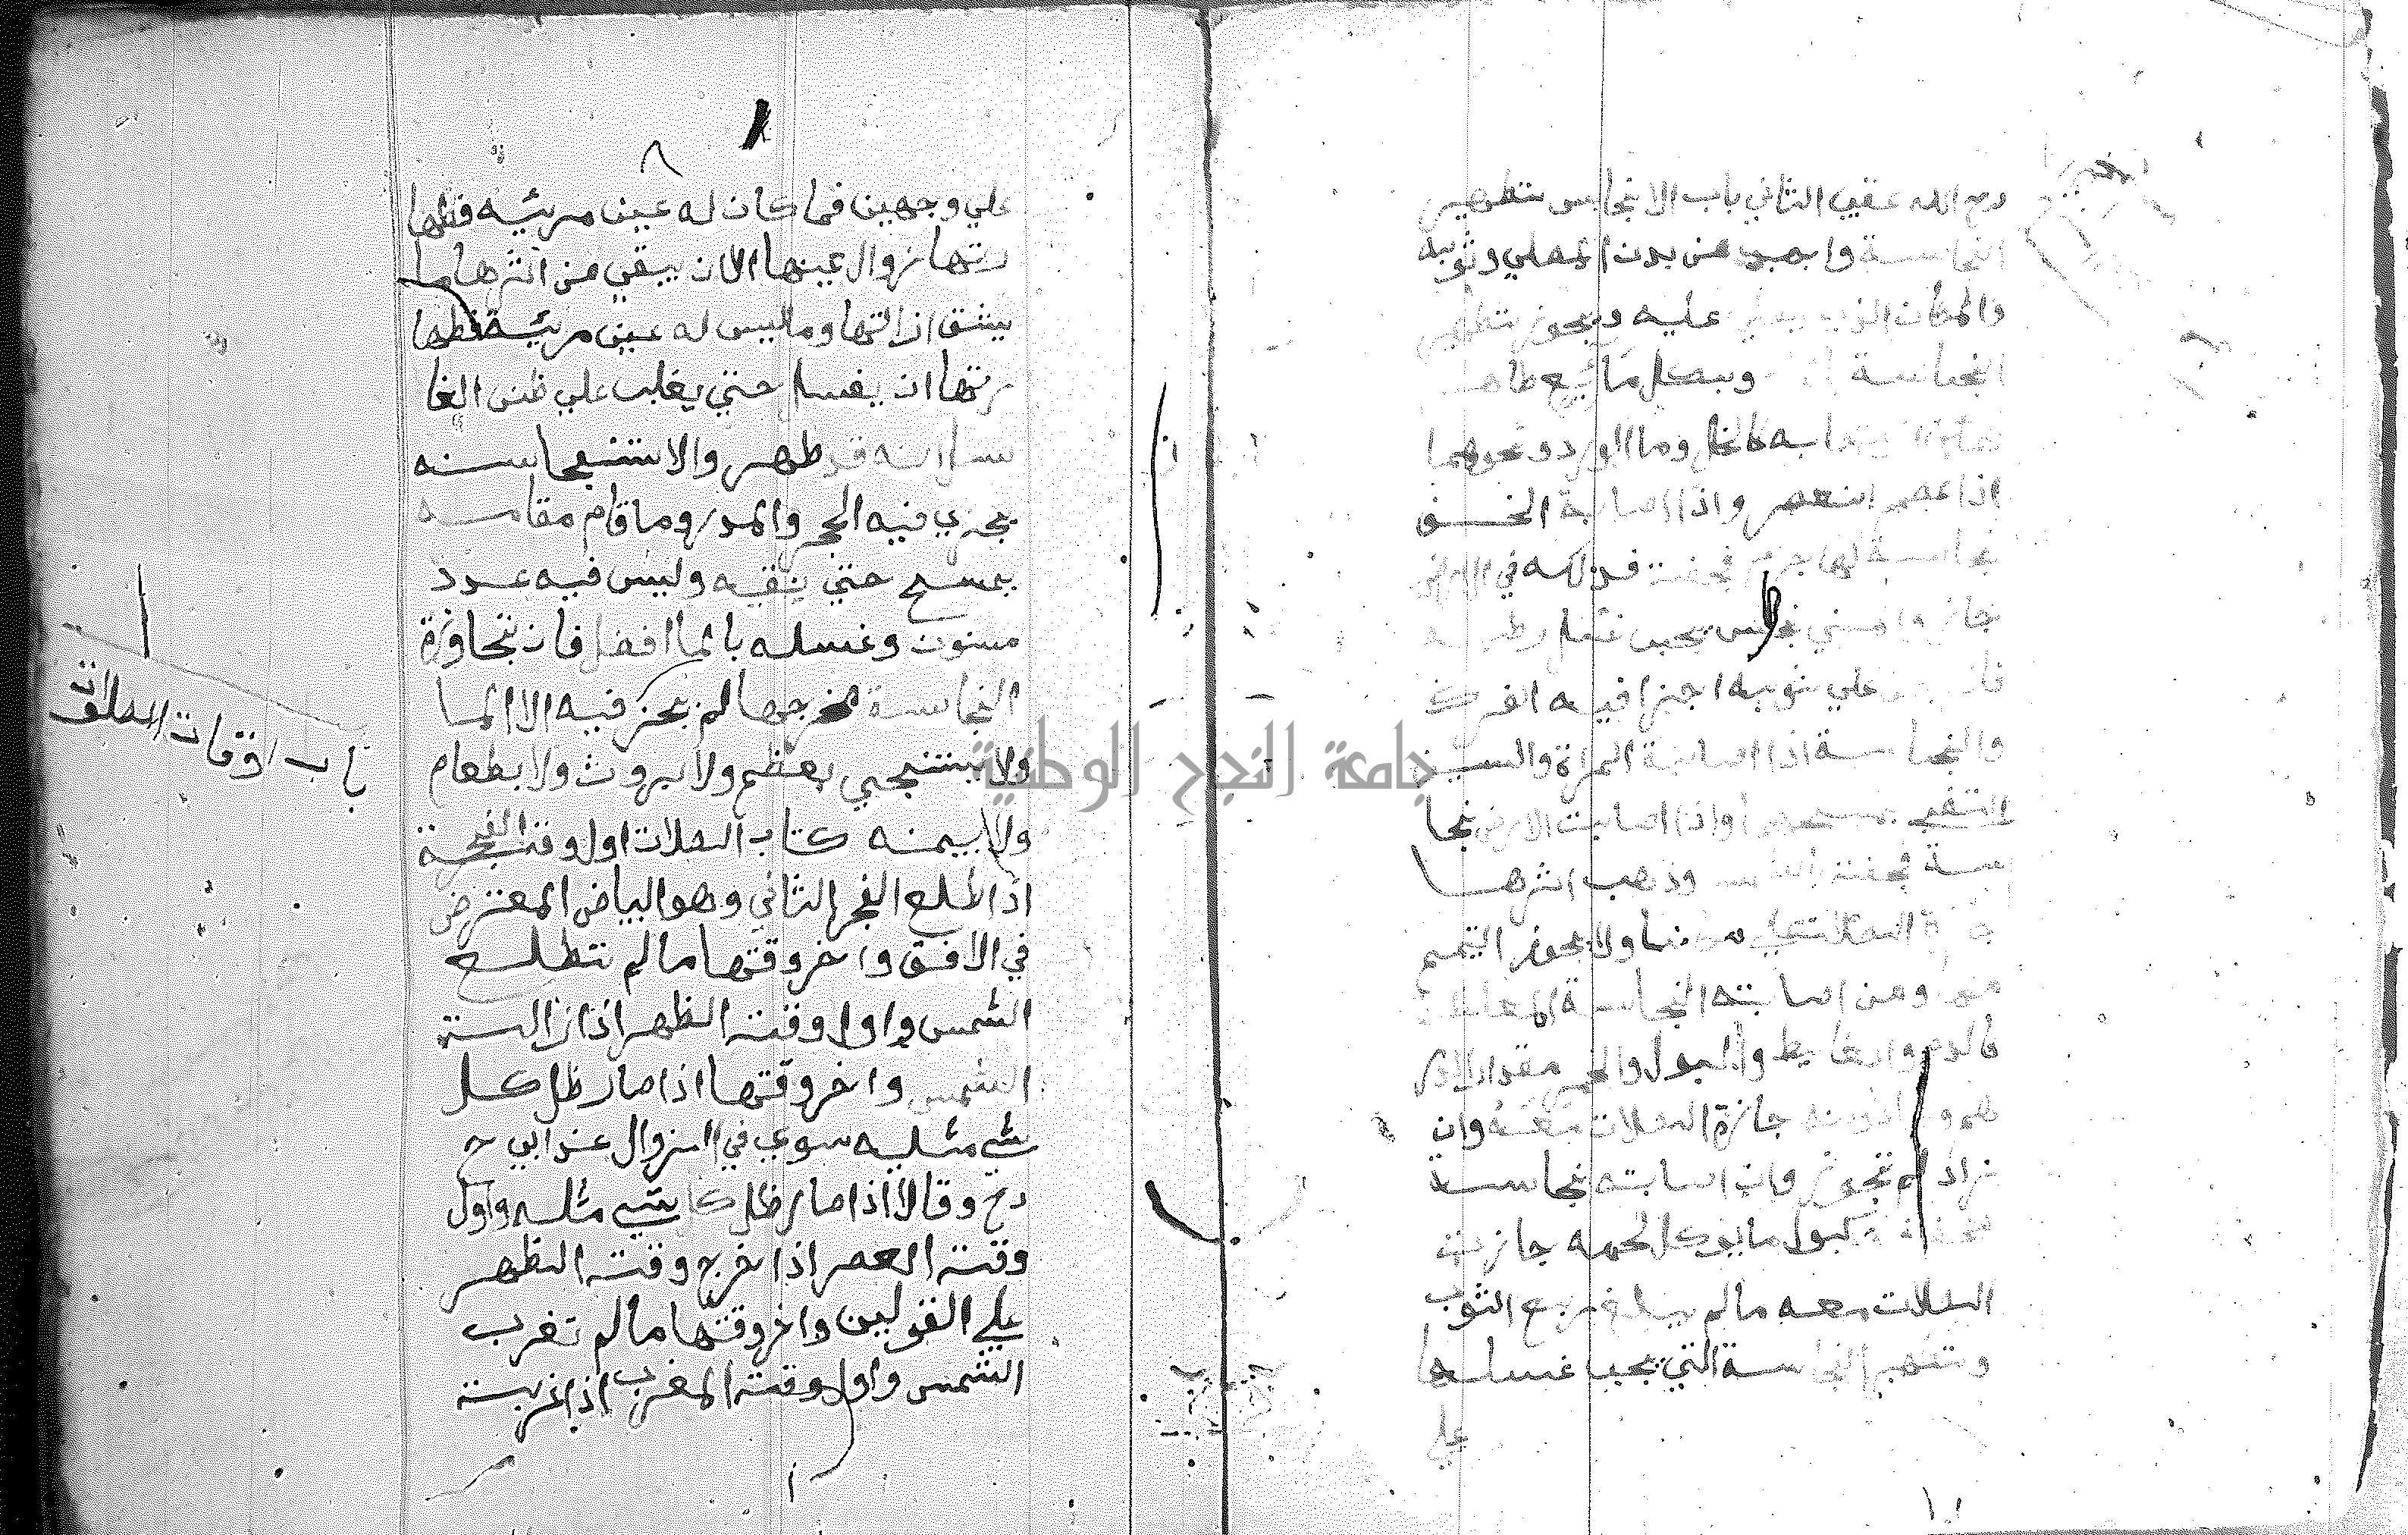 رح الله عقي الثاني باب الانجاس تطهير
النجاسة واجبة من بدن المصلي وثوبه
والمكان الذي يصلي عليه ويجوز تطهير
النجاسة وبكل مائع طاهر
به كالخل وما الورد ونحوهما
اذا عصر انعصر واذا اصابة الخف
نجاسة لها جرم فجفت فدلكه في الارض
جاز والمني نجس يجب غسل رطبه
فان جف علي ثوبه اجزا فيه الفرك
والنجاسة اذا اصابة المراة والسيف
اكتفي بمسحهما واذا اصابت الارض نجا
سة فجفت بالشمس وذهب اثرها
جازة الصلات علي مكانها ولا يجوز التيمم
منها ومن اصابته النجاسة المغلظة
كالدم والغايط والبول والخمر مقدار الدر
هم وما دونه جازة الصلات معه وان
زاد لم تجوز وان اصابته نجاسة
مخففة كبول ما يوكل لحمه جازت
الصلات معه مالم يبلغ ربع الثوب
وتطهير النجاسة التي يجب غسلها
علي
٨
علي وجهين فما كان له عين مريئه فطها
رتها زوال عينها الا ان يبقي من اثرها ما
يشق ازالتها وما ليس له عين مريئة فطها
رتها ان يغسل حتي يغلب علي ظن الغا
سل انه قد طهر والاستنجا سنه
يجزي فيه الحجر والمدر وما قام مقامه
يمسح حتي ينقيه وليس فيه عدد
مسنون وغسله بالما افضل فان تجاوزة
النجاسة مخرجها لم يجز فيه الا الما
ولا يستنجي بعظم ولا بروث ولا بطعام
ولا بيمنه كتاب الصلات اول وقت الفجر
اذا طلع الفجر الثاني وهو البياض المعترض
في الافق واخر وقتها مالم تطلع
الشمس واول وقت الظهر اذا زالت
الشمس واخر وقتها اذا صار ظل كل
شي مثليه سوي في الزوال عند ابي ح
رح وقالا اذا صار ظل كل شي مثله واول
وقت العصر اذا خرج وقت الظهر
علي القولين واخر وقتها مالم تغرب
الشمس واول وقت المغرب اذا غربت
باب اوقات الصلاة
جامعة النجاح الوطنية